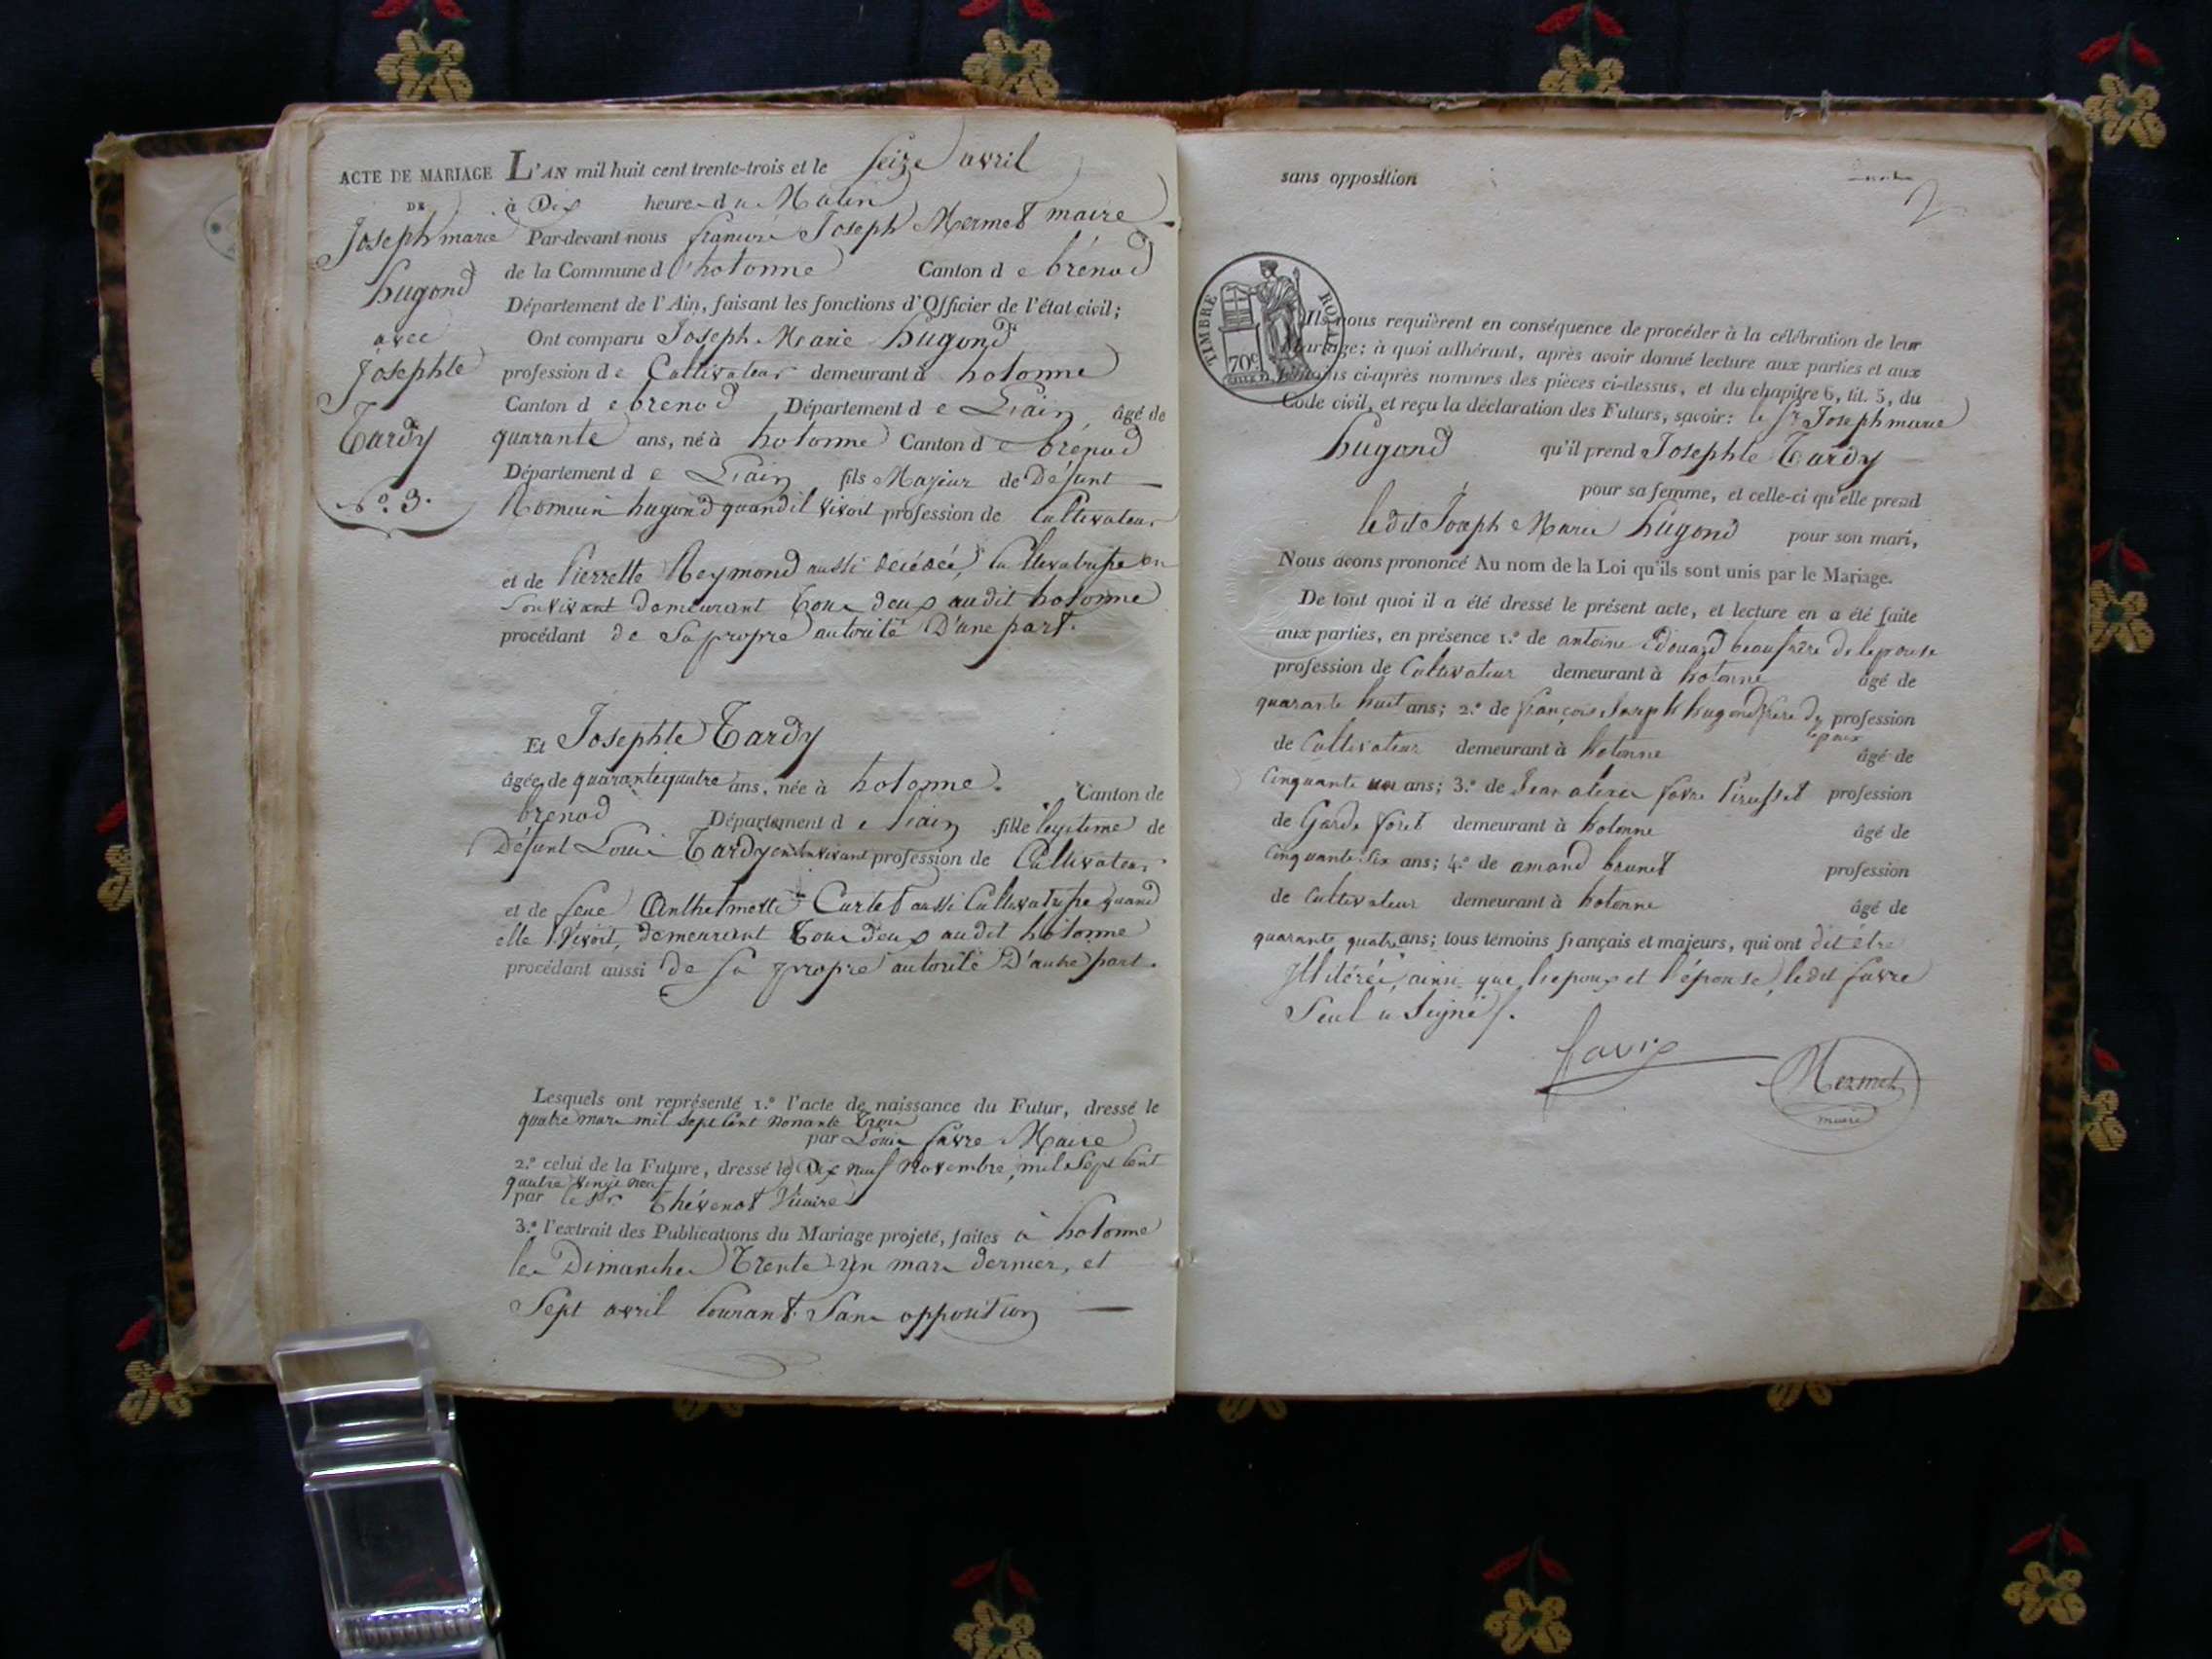 ACTE DE MARIAGE
DE
Joseph marie
hugond
avec
Josephte
Tardy
N.º 3.
L'AN mil huit cent trente-trois et le seize avril
à Dix heures du Matin
Par-devant nous françois Joseph Mermet maire
de la Commune d'hotonne Canton de brénod
Département de l'Ain, faisant les fonctions d'Officier de l'état civil;
Ont comparu Joseph Marie hugond
profession de Cultivateur demeurant à hotonne
Canton de brenod Département de L'ain âgé de
quarante ans, né à hotonne Canton de brénod
Département de L'ain fils Majeur de Défunt
Romain hugond quand il vivoit profession de Cultivateur
et de Pierrette Reymond aussi décédée, Cultivatrisse en
son vivant demeurant tous deux audit hotonne
procédant de sa propre autorité D'une part.
Et Josephte Tardy
âgée de quarante quatre ans, née à hotonne. Canton de
brenod Département de L'ain fille legitime de
Défunt Louis Tardy en son vivant profession de Cultivateur
et de feue Anthelmette Curtet aussi Cultivatrisse quand
elle Vivoit, demeurant tous deux audit hotonne
procédant aussi de sa propre autorité D'autre part.
Lesquels ont représenté 1.º l'acte de naissance du Futur, dressé le
quatre mars mil sept cent nonante trois
par Louis favre Maire
2.º celui de la Future, dressé le Dix neuf Novembre, mil Sept Cent
quatre vingt neuf
par le Sr. Thévenot Vicaire
3.º l'extrait des Publications du Mariage projeté, faites à hotonne
les Dimanches Trente un mars dernier, et
Sept avril Courant. Sans opposition
sans opposition
2
TIMBRE ROYAL
70c
Ils nous requièrent en conséquence de procéder à la célébration de leur
Mariage: à quoi adhérant, après avoir donné lecture aux parties et aux
témoins ci-après nommés des pièces ci-dessus, et du chapitre 6, tit. 5, du
Code civil, et reçu la déclaration des Futurs, savoir: le Sr. Joseph marie
hugond qu'il prend Josephte Tardy
pour sa femme, et celle-ci qu'elle prend
le dit Joseph Marie hugond pour son mari,
Nous avons prononcé Au nom de la Loi qu'ils sont unis par le Mariage.
De tout quoi il a été dressé le présent acte, et lecture en a été faite
aux parties, en présence 1.º de antoine Edouard beaufrère de lepouse
profession de Cultivateur demeurant à hotonne âgé de
quarante huit ans; 2.º de françois Joseph hugond frère de profession
lepoux
de Cultivateur demeurant à hotonne âgé de
Cinquante un ans; 3.º de Jean favre profession
de Garde foret demeurant à hotonne âgé de
Cinquante Six ans; 4.º de amand brunet profession
de Cultivateur demeurant à hotonne âgé de
quarante quatre ans; tous témoins français et majeurs, qui ont dit être
Illitérés, ainsi que l'epoux et l'épouse, le dit favre
Seul a Signé.
favre
Mermet
maire